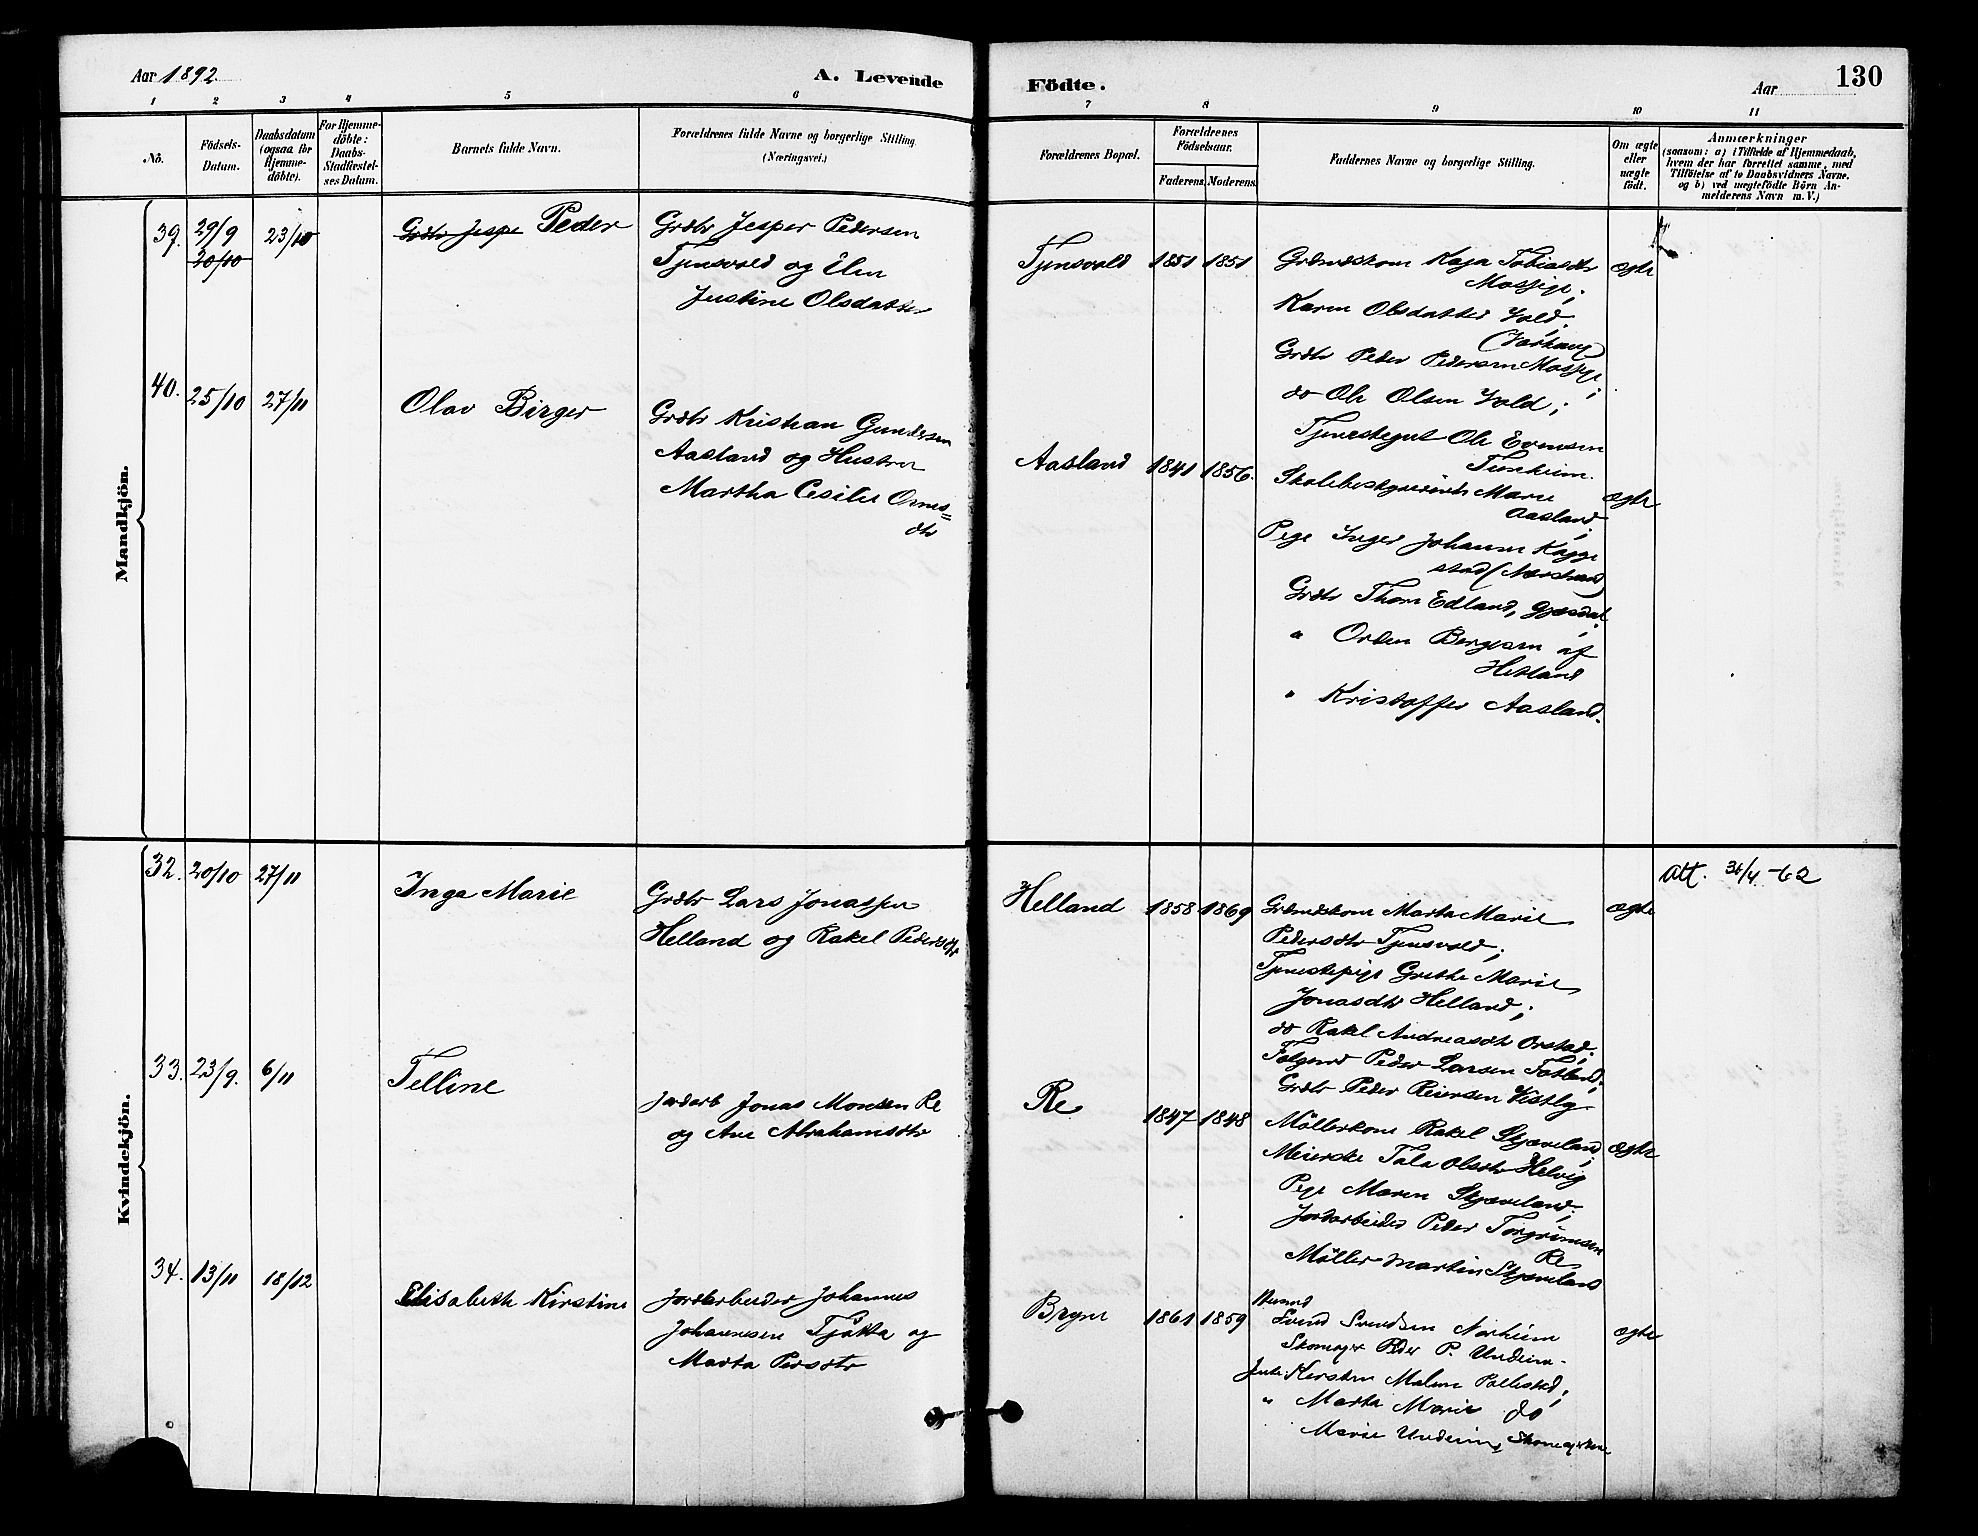 Aar 1892.
A. Levende
Födte.
Aar
130
1 2 3 4 5 6 7 8 9 10 11
No.
Födsels-
Datum.
Daabsdatum
(ogsaa for
Hjemme-
döbte).
For Hjemme-
döbte:
Daabs-
Stadfæstel-
ses Datum.
Barnets fulde Navn.
Forældrenes fulde Navne og borgerlige Stilling.
(Næringsvei.)
Forældrenes Bopæl.
Forældrenes
Födselsaar.
Faderens. Moderens.
Faddernes Navne og borgerlige Stilling.
Om ægte
eller
uægte
födt.
Anmærkninger
(saasom: a) i Tilfælde af Hjemmedaab,
hvem der har forrettet samme, med
Tilföielse af to Daabsvidners Navne.
og b) ved uægtefödte Börn An-
melderens Navn m.V.)
Mandkjön.
39. 29/9 23/10
20/10
Grdbr Jespe Peder
Grdbr Jesper Pedersen
Tjensvold og Elen
Justine Olsdatter
Tjensvold 1851 1851
Grdmdskone Kaja Tobiasdtr
Mossige;
Karen Olsdatter Vold.
Grdbr Peder Pedersen Mossige;
do Ole Olsen Vold;
Tjenestegut Ole Evensen
Tunheim.
ægte
40. 25/10 27/11
Olav Birger
Grdbr Kristian Gundersen
Aasland og Hustru
Martha Cesilie Omes=
dtr
Aasland 1841 1856.
Skolebestyrerinde Marie
Aasland;
Pige Inger Johanne Kagge
stad (Nærstrand)
Grdbr Thore Edland, Gjesdal.
" Orden Bergesen af
Hetland
" Kristoffer Aasland.
ægte
Kvindekjön.
32. 20/10 27/11
Inga Marie
Grdbr Lars Jonassen
Helland og Rakel Pedersdtr
Helland 1858 1869
Grdmdskone Marta Marie
Pedersdtr Tjensvold;
Tjenestepige Grethe Marie
Jonasdtr Helland;
do Rakel Andreasdtr Orstad;
Følgemd Peder Larsen Fotland;
Grdbr Peder Reiersen Vestly
ægte
Att. 36/4 -62
33. 23/9. 6/11
Telline
Jordarb Jonas Monsen Re
og Ane Abrahamsdtr
Re 1847 1848
Möllerkone Rakel Skjæveland;
Meierske Tala Olsdtr Helvig
Pige Maren Skjæveland;
Jordarbeider Peder Torgrimsen
Re
Möller Martin Skjæveland
ægte
34. 13/11 18/12
Elisabeth Kirstine
Jordarbeider Johannes
Johannesen Tjötta og
Marta Persdtr
Bryne 1861 1859
Husmd
Svend Svendsen Norheim
Skomager Peder P. Undeim.
Kirsten Malene Pollestad;
" Marta Marie do
Marie Undeim, Skomagerkone
ægte